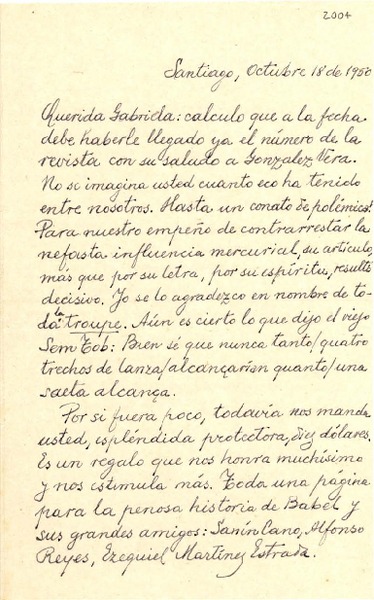 2004
Santiago, Octubre 18 de 1950
Querida Gabriela: calculo que a la fecha
debe haberle llegado ya el número de la
revista con su saludo a González Vera.
No se imagina usted cuanto eco ha tenido
entre nosotros. Hasta un conato de polémica!
Para nuestro empeño de contrarrestar la
nefasta influencia mercurial, su artículo,
más que por su letra, por su espíritu, resultó
decisivo. Yo se lo agradezco en nombre de to-
da la troupe. Aún es cierto lo que dijo el viejo
Sem Tob: Bien sé que nunca tanto/quatro
trechos de lanza/alcançarían quanto/una
saeta alcança.
Por si fuera poco, todavía nos manda
usted, espléndida protectora, diez dólares.
Es un regalo que nos honra muchísimo
y nos estimula más. Toda una página
para la penosa historia de Babel y
sus grandes amigos: Sanín Cano, Alfonso
Reyes, Ezequiel Martínez Estrada.